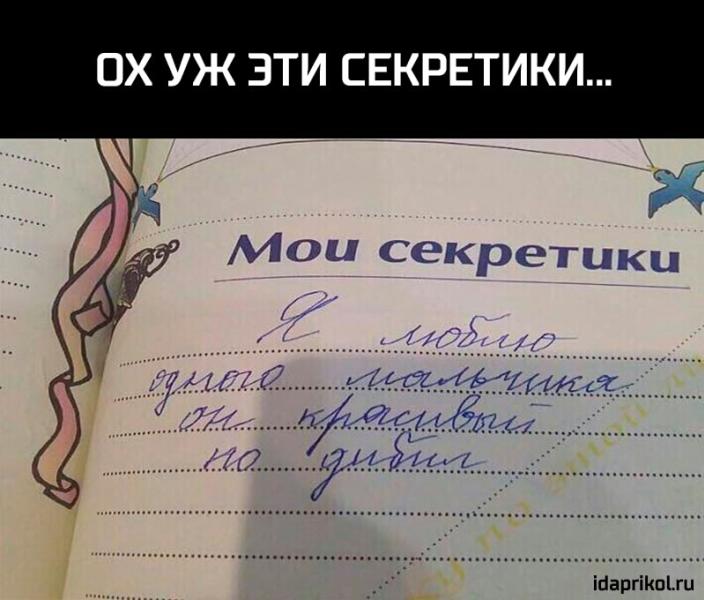 ОХ УЖ ЭТИ СЕКРЕТИКИ...
Мои секретики
Я люблю
одного мальчика
он красивый
но дибил
idaprikol.ru